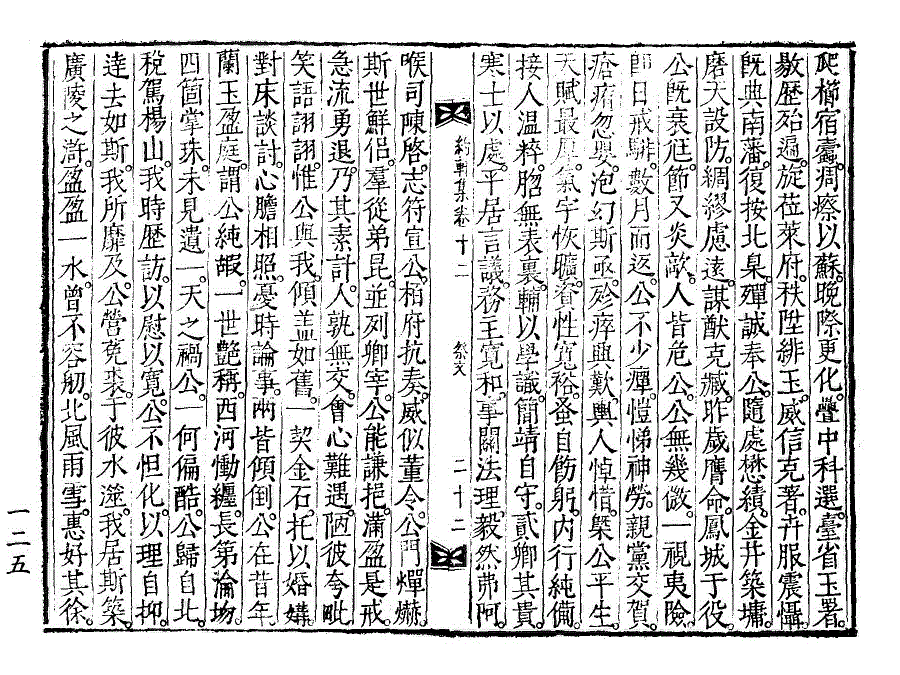 爬櫛宿蠹。痌瘵以蘇。晚際更化。疊中科選。臺省玉署。
敭歷殆遍。旋莅萊府。秩陞緋玉。威信克著。卉服震懾。
旣典南藩。復按北臬。殫誠奉公。隨處懋績。金井築墉。
磨天設防。綢繆慮遠。謀猷克臧。昨歲膺命。鳳城于役。
公旣衰尫。節又炎歊。人皆危公。公無幾微。一視夷險。
卽日戒騑。數月而返。公不少癉。愷悌神勞。親黨交賀。
瘡痏忽嬰。泡幻斯亟。殄瘁興歎。輿人悼惜。槩公平生。
天賦最厚。氣宇恢曠。資性寬裕。蚤自飭躬。內行純備。
接人溫粹。䐇無表裏。輔以學識。簡靖自守。貳卿其貴。
寒士以處。平居言議。務主寬和。事關法理。毅然弗阿。
約軒集卷十二 祭文 二十二
喉司陳啓。志符宣公。柏府抗奏。威似董令。公門燀爀。
斯世鮮侶。羣從弟昆。並列卿宰。公能謙挹。滿盈是戒。
急流勇退。乃其素計。人孰無交。會心難遇。陋彼夸毗。
笑語詡詡。惟公與我。傾盖如舊。一契金石。托以婚媾。
對床談討。心膽相照。憂時論事。兩皆傾倒。公在昔年。
蘭玉盈庭。謂公純嘏。一世艶稱。西河慟纏。長第淪歿。
四箇掌珠。未見遺一。天之禍公。一何偏酷。公歸自北。
稅駕楊山。我時歷訪。以慰以寬。公不怛化。以理自抑。
逹去如斯。我所靡及。公營菟裘。于彼水滏。我居斯築。
廣陵之滸。盈盈一水。曾不容舠。北風雨雪。惠好其徐。
一二五